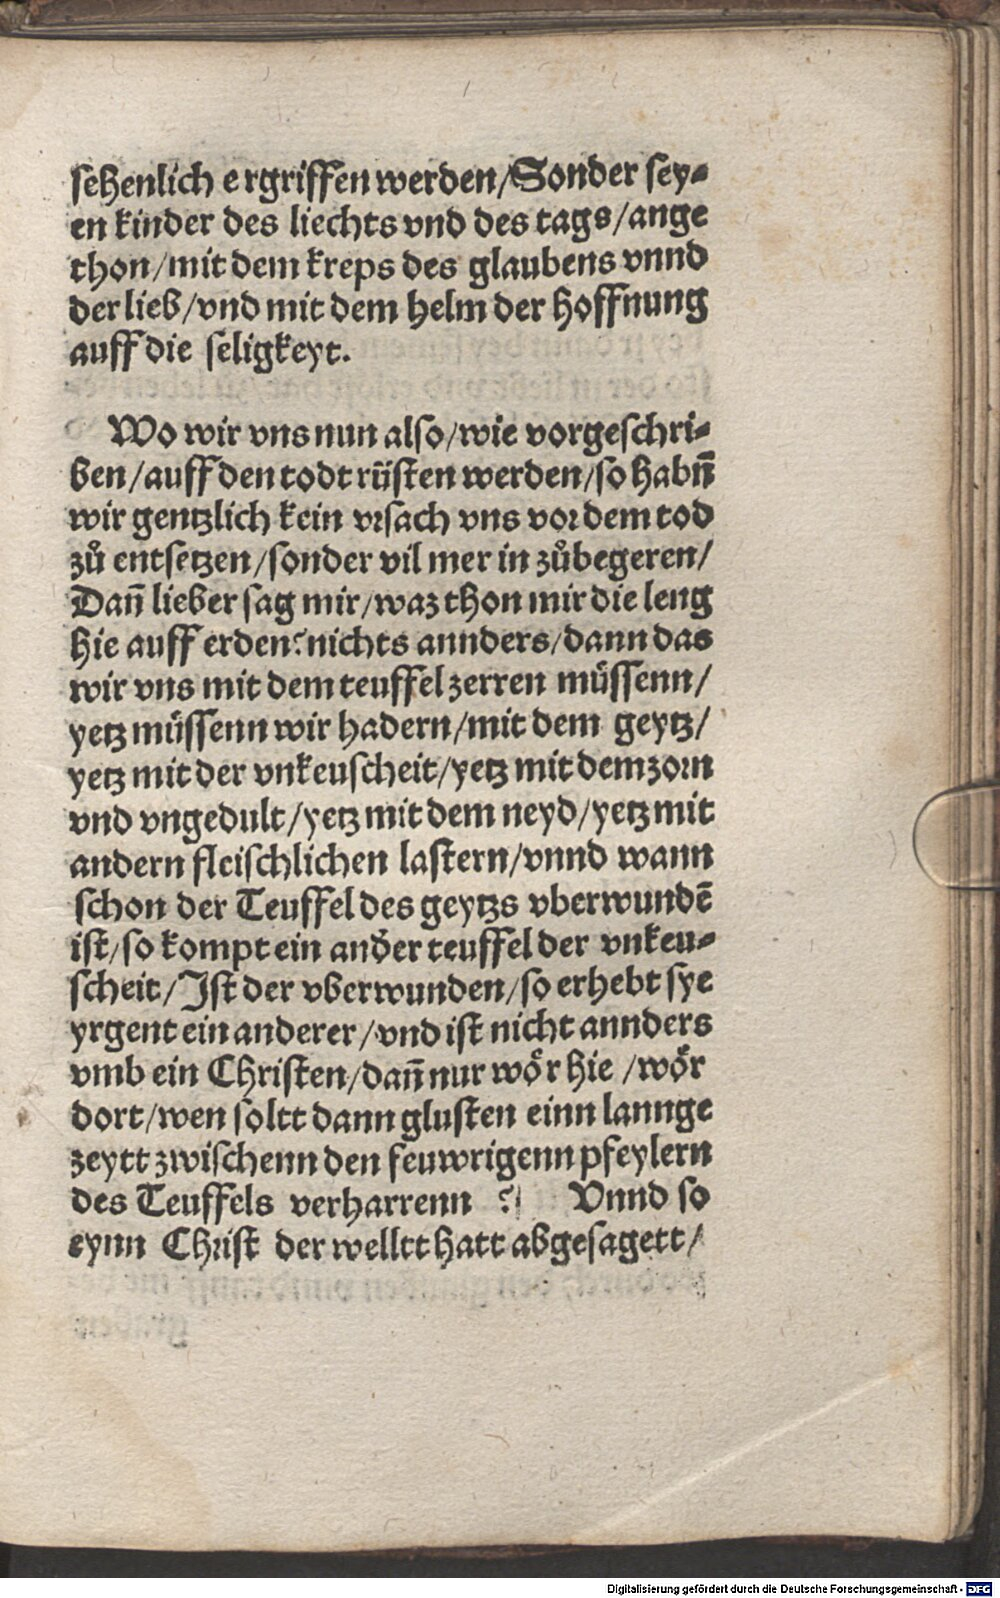 sehenlich ergriffen werden/Sonder sey⸗
en kinder des liechts vnd des tags/ange
thon/mit dem kreps des glaubens vnnd
der lieb/vnd mit dem helm der hoffnung
auff die seligkeyt.
Wo wir vns nun also/wie vorgeschri⸗
ben/auff den todt rüsten werden/so habn̄
wir gentzlich kein vrsach vns vor dem tod
zů entsetzen/sonder vil mer in zůbegeren/
Dan̄ lieber sag mir/waz thon mir die leng
hie auff erden? nichts annders/dann das
wir vns mit dem teuffel zerren müssenn/
yetz müssenn wir hadern/mit dem geytz/
yetz mit der vnkeuscheit/yetz mit dem zorn
vnd vngedult/yetz mit dem neyd/yetz mit
andern fleischlichen lastern/vnnd wann
schon der Teuffel des geytzs vberwundē
ist/so kompt ein anďer teuffel der vnkeu⸗
scheit/Ist der vberwunden/so erhebt sye
yrgent ein anderer/vnd ist nicht annders
vmb ein Christen/dan̄ nur woͤr hie /woͤr
dort/wen soltt dann glusten einn lannge
zeytt zwischenn den feuwrigenn pfeylern
des Teuffels verharrenn ? Vnnd so
eynn Christ der welltt hatt abgesagett/
Digitalisierung gefördert durch die Deutsche Forschungsgemeinschaft - DFG